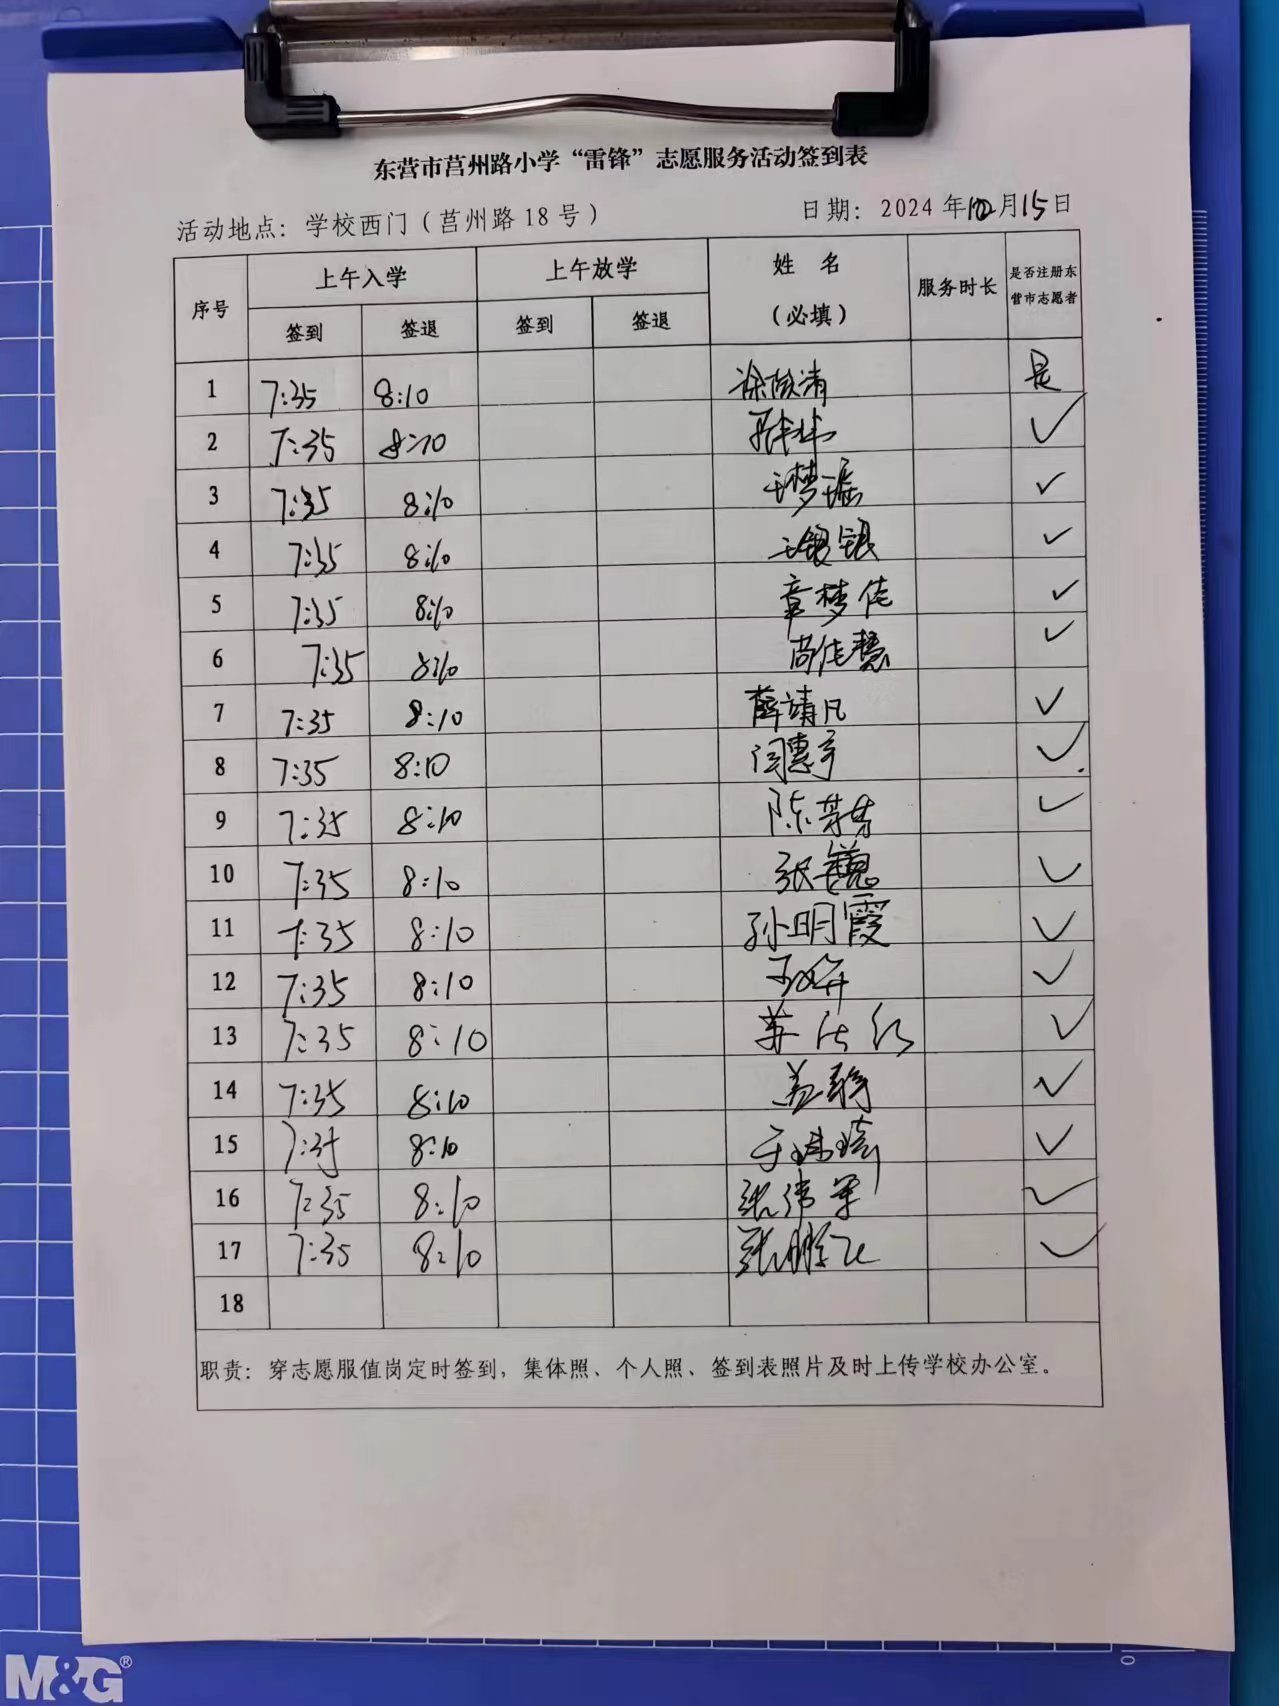 东营市莒州路小学“雷锋”志愿服务活动签到表
活动地点：学校西门（莒州路18号） 日期：2024年10月15日
序号 上午入学 上午放学 姓名（必填） 服务时长 是否注册东营市志愿者
签到 签退 签到 签退
1 7:35 8:10 清 是
2 7:35 8:10 ✓
3 7:35 8:10 王梦瑶 ✓
4 7:35 8:10 王银银 ✓
5 7:35 8:10 章梦佳 ✓
6 7:35 8:10 尚佳慧 ✓
7 7:35 8:10 薛靖凡 ✓
8 7:35 8:10 闫惠宇 ✓
9 7:35 8:10 陈芳芳 ✓
10 7:35 8:10 张 ✓
11 7:35 8:10 孙明霞 ✓
12 7:35 8:10 ✓
13 7:35 8:10 红 ✓
14 7:35 8:10 盖 ✓
15 7:35 8:10 于 ✓
16 7:35 8:10 张伟军 ✓
17 7:35 8:10 张鹏飞 ✓
18
职责：穿志愿服值岗定时签到，集体照、个人照、签到表照片及时上传学校办公室。
M&G®